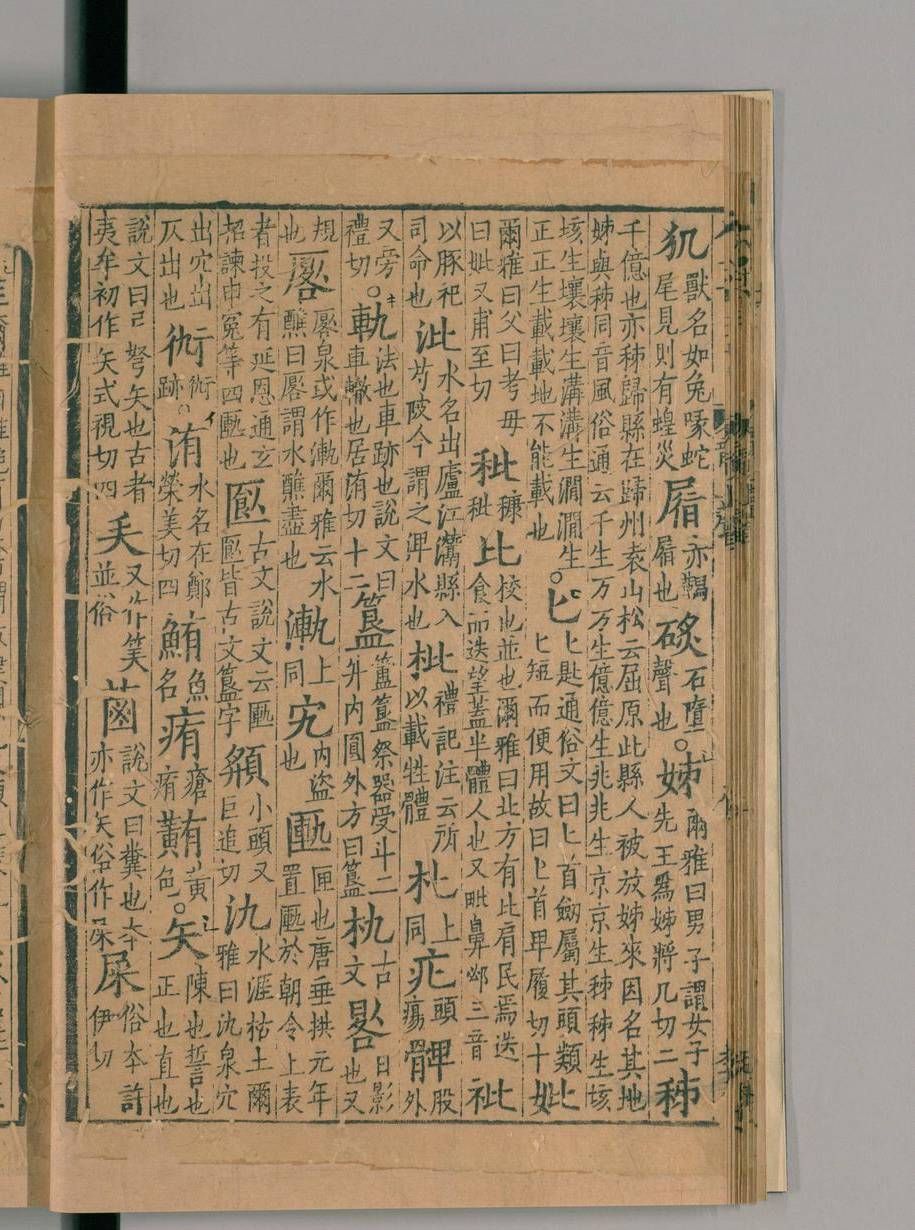 犰獸名如兔喙蛇尾見則有蝗災㞒亦鞨㞒也硊石墮聲也。姊爾雅曰男子謂女子先王爲姊將几切二秭
千億也亦秭歸縣在歸州袁山松云屈原此縣人被放姊來因名其地姊與秭同音風俗通云千生万万生億億生兆兆生京京生秭秭生垓
垓生壤壤生溝溝生澗澗生正正生載載地不能載也。匕匕匙通俗文曰匕首劒屬其頭類匕匕短而便用故曰匕首卑履切十妣
爾雅曰父曰考母曰妣又甫至切秕穅秕比校也並也爾雅曰北方有比肩民焉迭食而迭望蓋半體人也又毗鼻邲三音𥘲
以豚祀司命也沘水名出廬江灊縣入芍陂今謂之淠水也枇禮記注云所以載牲體朼上同疕頭瘍髀股外
又旁禮切。軌法也車跡也說文曰車轍也居洧切十二簋簠簋祭器受斗二升内圓外方曰簋朹古文晷日影也又
規也厬厬泉或作漸爾雅云水醮曰厬謂水醮盡也漸上同宄内盜也匭匣也唐垂拱元年置匭於朝令上表
者投之有延恩通玄招諫申冤等四匭也匦古文說文云匭匦皆古文簋字頯小頭又巨追切氿水涯枯土爾雅曰氿泉穴
出穴出仄出也衏衏跡。洧水名在鄭榮美切四鮪魚名痏瘡痏䵋黃色。矢陳也誓也正也直也
說文曰弓弩矢也古者夷牟初作矢式視切四𠂕又作笶並俗𦳊說文曰糞也本亦作矢俗作屎屎俗本許伊切